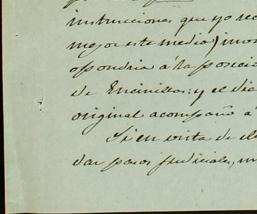 instrucciones que yo rec
mejor este medio) inme
opondria á la posecio
de Encinillas: y el dic
original acompaño á
Si en vista de el
dar pasos judiciales, m